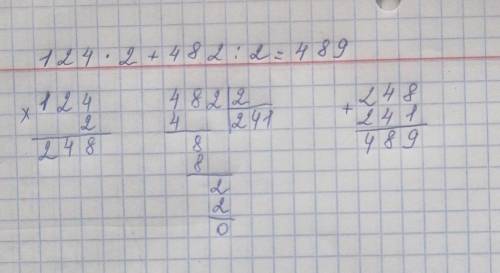 124 · 2 + 482 : 2 = 489
× 124
2
248
482 2
4 241
8
8
2
2
0
+ 248
241
489